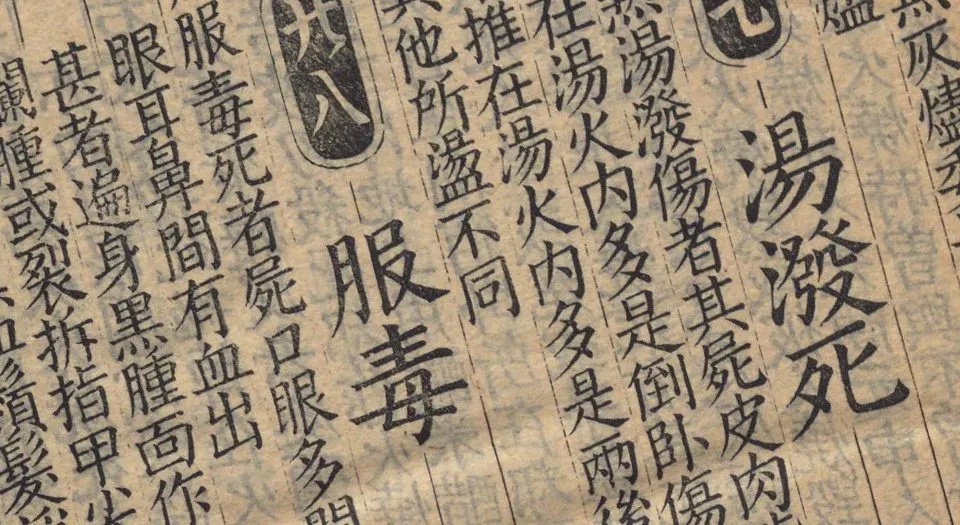 無灰燼
七
湯潑死
熱湯潑傷者其屍皮肉
在湯火內多是倒卧傷
推在湯火內多是兩後
其他所盪不同
廿八
服毒
服毒死者屍口眼多開
眼耳鼻間有血出
甚者遍身黑腫面作
爛腫或裂拆指甲尖
血鬚髮